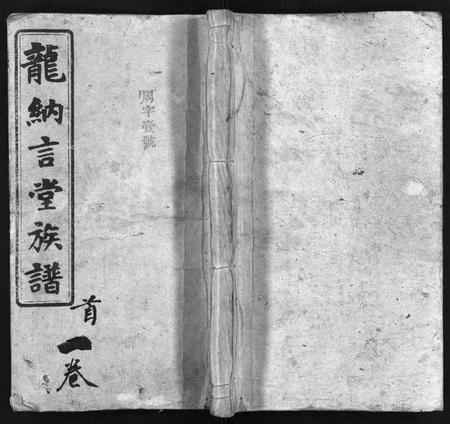 龍納言堂族譜
首
一卷
周字壹號